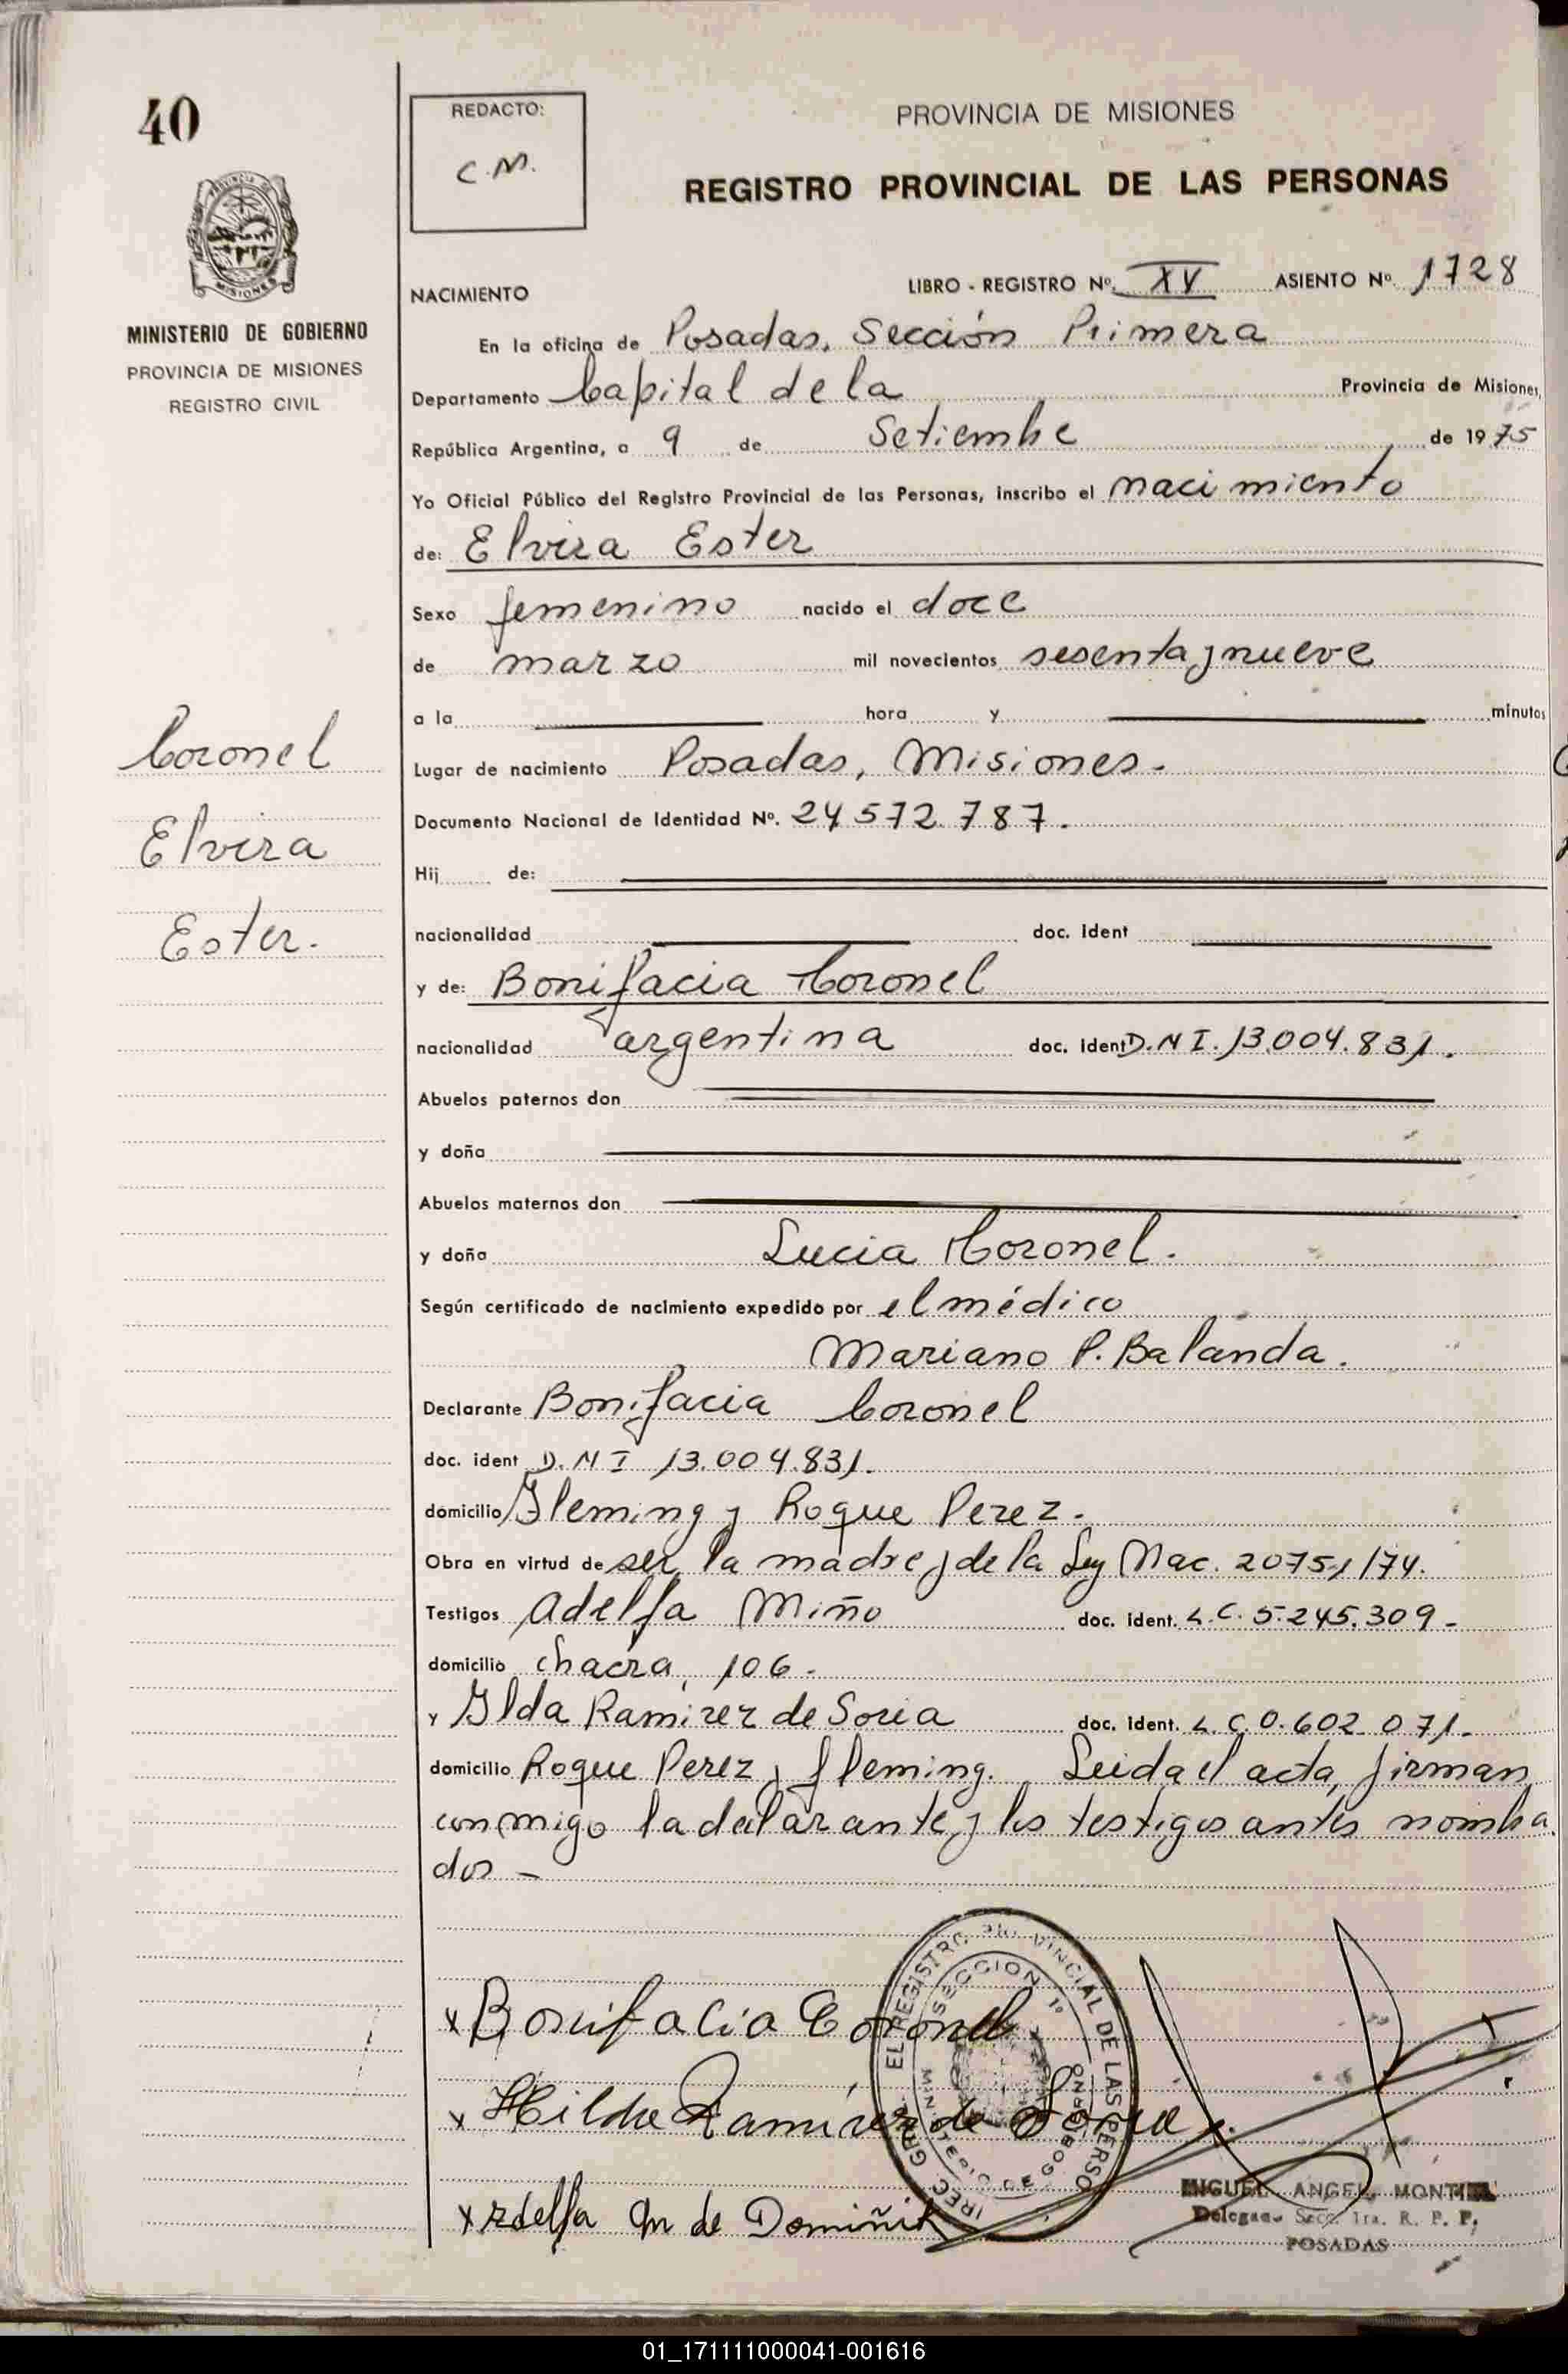 40
PROVINCIA DE
MISIONES
MINISTERIO DE GOBIERNO
PROVINCIA DE MISIONES
REGISTRO CIVIL
Coronel
Elvira
Ester.
REDACTO:
C.M.
PROVINCIA DE MISIONES
REGISTRO PROVINCIAL DE LAS PERSONAS
NACIMIENTO LIBRO - REGISTRO Nº XV ASIENTO Nº 1728
En la oficina de Posadas, Sección Primera
Departamento Capital de la Provincia de Misiones,
República Argentina, a 9 de Setiembre de 1975
Yo Oficial Público del Registro Provincial de las Personas, inscribo el nacimiento
de: Elvira Ester
Sexo femenino nacido el doce
de marzo mil novecientos sesenta y nueve
a la hora y minutos
Lugar de nacimiento Posadas, Misiones.
Documento Nacional de Identidad Nº. 24 572 787.
Hij de:
nacionalidad doc. ident
y de: Bonifacia Coronel
nacionalidad argentina doc. ident D.N I. 13.004.831.
Abuelos paternos don
y doña
Abuelos maternos don
y doña Lucia Coronel.
Según certificado de nacimiento expedido por el médico
Mariano P. Balanda.
Declarante Bonifacia Coronel
doc. ident D. N I 13.004.831.
domicilio Fleming y Roque Perez.
Obra en virtud de ser la madre y de la Ley Nac. 20751/74.
Testigos Adelfa Miño doc. ident. L.C. 5.245.309-
domicilio chacra, 106.
y Ilda Ramirez de Soria doc. ident. L.C. 0.602 071.
domicilio Roque Perez y fleming. Leida el acta, firman
conmigo la declarante y los testigos antes nombra
dos -
x Bonifacia Coronel
x Hilda Ramirez de Soria
x Adelfa M de
EL REGISTRO PROVINCIAL DE LAS PERSO
SECCION 1º
MINISTERIO DE GOBIERNO
MIGUEL ANGEL MONTIEL
Delegado Secc. 1ra. R. P. P.
POSADAS
01_171111000041-001616